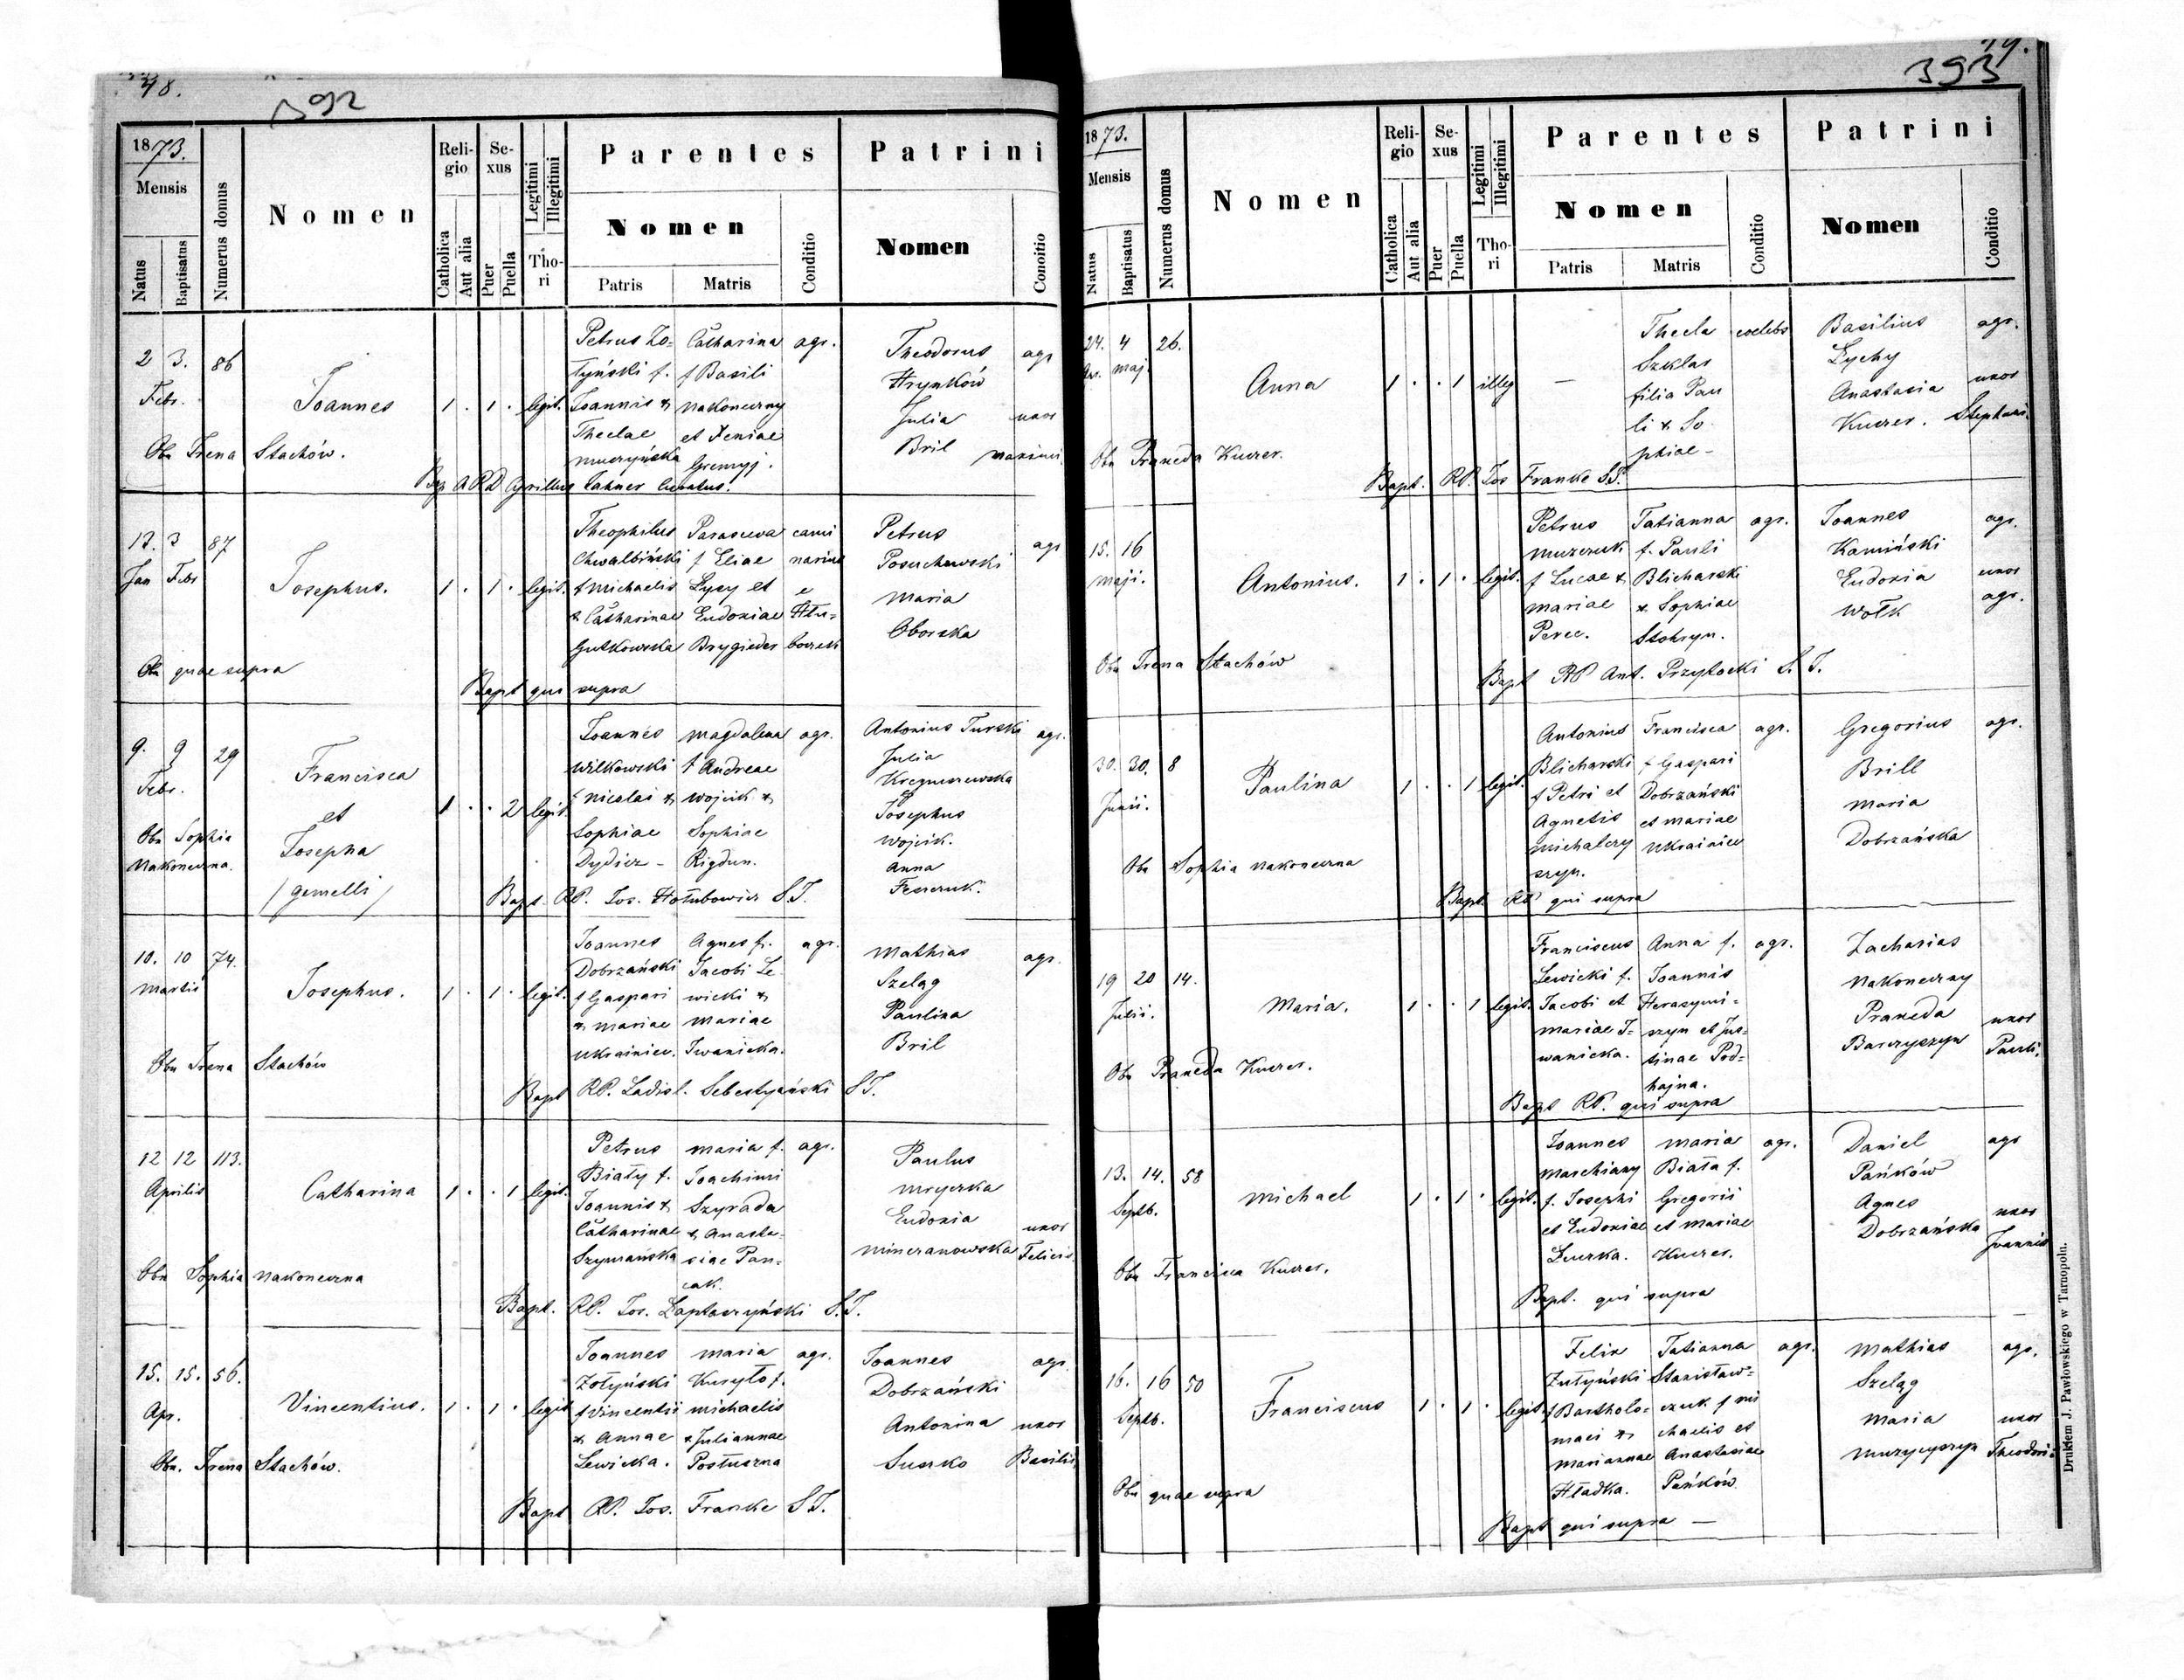 48.
392
1873.
Mensis
Natus
Baptisatus
Numerus domus
Nomen
Religio
Catholica
Aut alia
Sexus
Puer
Puella
Legitimi
Illegitimi
Thori
Parentes
Nomen
Patris
Matris
Conditio
Patrini
Nomen
Conditio
2 3. 86
Febr.
Joannes
1 . 1 . legit.
Petrus Zo= Catharina agr.
tyński f. f Basili
Joannis & Nakoneczny
Theclae et Xeniae
Muczyńska Gremyj.
Theodorus agr
Hrynków
Julia uxor
Bril Maximi.
Obs Irena Stachów.
Bap A R D Cyrillus Lahner Curatus.
13. 3 87
Jan Febr
Josephus.
1 . 1 . legit.
Theophilus Parascewa cami
Chwalbiński f Eliae narius
f Michaelis Łysy et e
& Catharinae Eudoxiae Hłu=
Gutkowska Brygieder boczek
Petrus agr
Posuchowski
Maria
Oborska
Obs quae supra
Bapt qui supra
9. 9 29
Febr.
Francisca
et
Josepha
/gemelli/
1 . . 2 legit.
Joannes Magdalena agr.
Wilkowski f Andreae
f Nicolai & Wojcik &
Sophiae Sophiae
Dydicz - Rigdun.
Antonius Turski agr.
Julia
Josephus
Wojcik.
Anna
Obs Sophia
Nakoneczna.
Bapt RP. Jos. Hołubowicz S.J.
10. 10 74.
Martii
Josephus.
1 . 1 . legit.
Joannes Agnes f. agr.
Dobrzański Jacobi Le
f Gaspari wicki &
& Mariae Mariae
Ukrainiec. Iwanicka.
Mathias agr.
Szeląg
Paulina
Bril
Obs Irena Stachów
Bapt RP. Ladisl. Sebestyański SJ.
12 12 113.
Aprilis
Catharina
1 . . 1 legit.
Petrus Maria f. agr.
Biały f. Joachimi
Joannis & Szyrada
Catharinae & Anasta-
Szymańska siae Pan=
cak.
Paulus
Mryczka
Eudoxia uxor
Minczanowska Felicis
Obs Sophia Nakoneczna
Bapt. RP. Jos. Łaptaszyński S.J.
15. 15. 56.
Apr.
Vincentius.
1 . 1 . legit
Joannes Maria agr.
Zołyński Kuryło f.
f Vincentii Michaelis
& Annae & Juliannae
Lewicka. Postuszna
Joannes agr.
Dobrzański
Antonina uxor
Suszko Basilii
Obs. Irena Stachów.
Bapt RP. Jos. Franke SJ.
393
1873.
Mensis
Natus
Baptisatus
Numerus domus
Nomen
Religio
Catholica
Aut alia
Sexus
Puer
Puella
Legitimi
Illegitimi
Thori
Parentes
Nomen
Patris
Matris
Conditio
Patrini
Nomen
Conditio
24. 4 26.
Apr. Maj.
Anna
1 . . 1 illeg
— Thecla coelebs
Szklar
filia Pau
li & So
phiae -
Basilius agr.
Łychy
Anastasia uxor
Kuczer. Stephani.
Obs Praxeda Kuczer.
Bapt. RP. Jos Franke SJ.
15. 16
Maji.
Antonius.
1 . 1 . legit.
Petrus Tatianna agr.
Muzeruk f. Pauli
f Lucae & Blicharski
Mariae & Sophiae
Perec. Stohryn.
Joannes agr.
Kamiński
Eudoxia uxor
Wołk agr.
Obs Irena Stachów
Bapt RP Ant. Przyłocki S.J.
30. 30. 8
Junii.
Paulina
1 . . 1 legit.
Antonius Francisca agr.
Blicharski f Gaspari
f Petri et Dobrzański
Agnetis et Mariae
Michalczy Ukrainiec
szyn.
Gregorius agr.
Brill
Maria
Dobrzańska
Obs Sophia Nakoneczna
Bapt. RP qui supra
19 20 14.
Julii.
Maria.
1 . . 1 legit.
Franciscus Anna f. agr.
Lewicki f. Joannis
Jacobi et Herasymi=
Mariae I- szyn et Jus=
wanicka. tinae Pod=
hajna.
Zacharias
Nakoneczny
Praxeda uxor
Barczyszyn Pauli.
Obs Praxeda Kuczer.
Bapt RP. qui supra
13. 14. 58
Septb.
Michael
1 . 1 . legit.
Joannes Maria agr.
Marchiany Biała f.
f. Josephi Gregorii
et Eudoxiae et Mariae
Kuczer.
Daniel agr
Pańków
Agnes uxor
Dobrzańska Joannis
Obs Francisca Kuczer.
Bapt. qui supra
16. 16 50
Septb.
Franciscus
1 . 1 . legit.
Felix Tatianna agr.
Zułyński Stanisław=
f Bartholo= czuk f Mi
maei & chaelis et
Mariannae Anastasiae
Hładka. Pańków.
Mathias agr.
Szeląg
Maria uxor
Muzyczyszyn Theodori.
Obs quae supra
Bapt qui supra —
Drukiem J. Pawłowskiego w Tarnopolu.